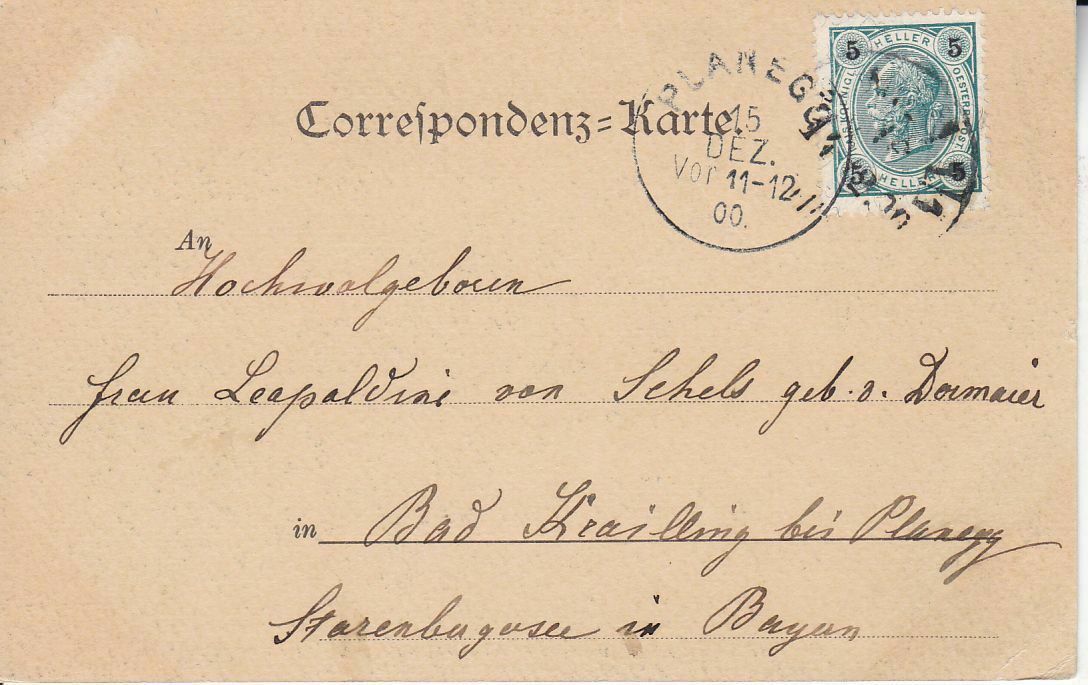 Correspondenz=Karte.
PLANEGG
15
DEZ.
Vor 11-12
00.
5 HELLER 5
KAIS. KÖNIGL. OESTERR. POST
5 HELLER 5
An
Hochwolgeboren
Frau Leopoldine von Schels geb. v. Dormaier
in Bad Krailling bei Planegg
Starenbergersee in Bayern